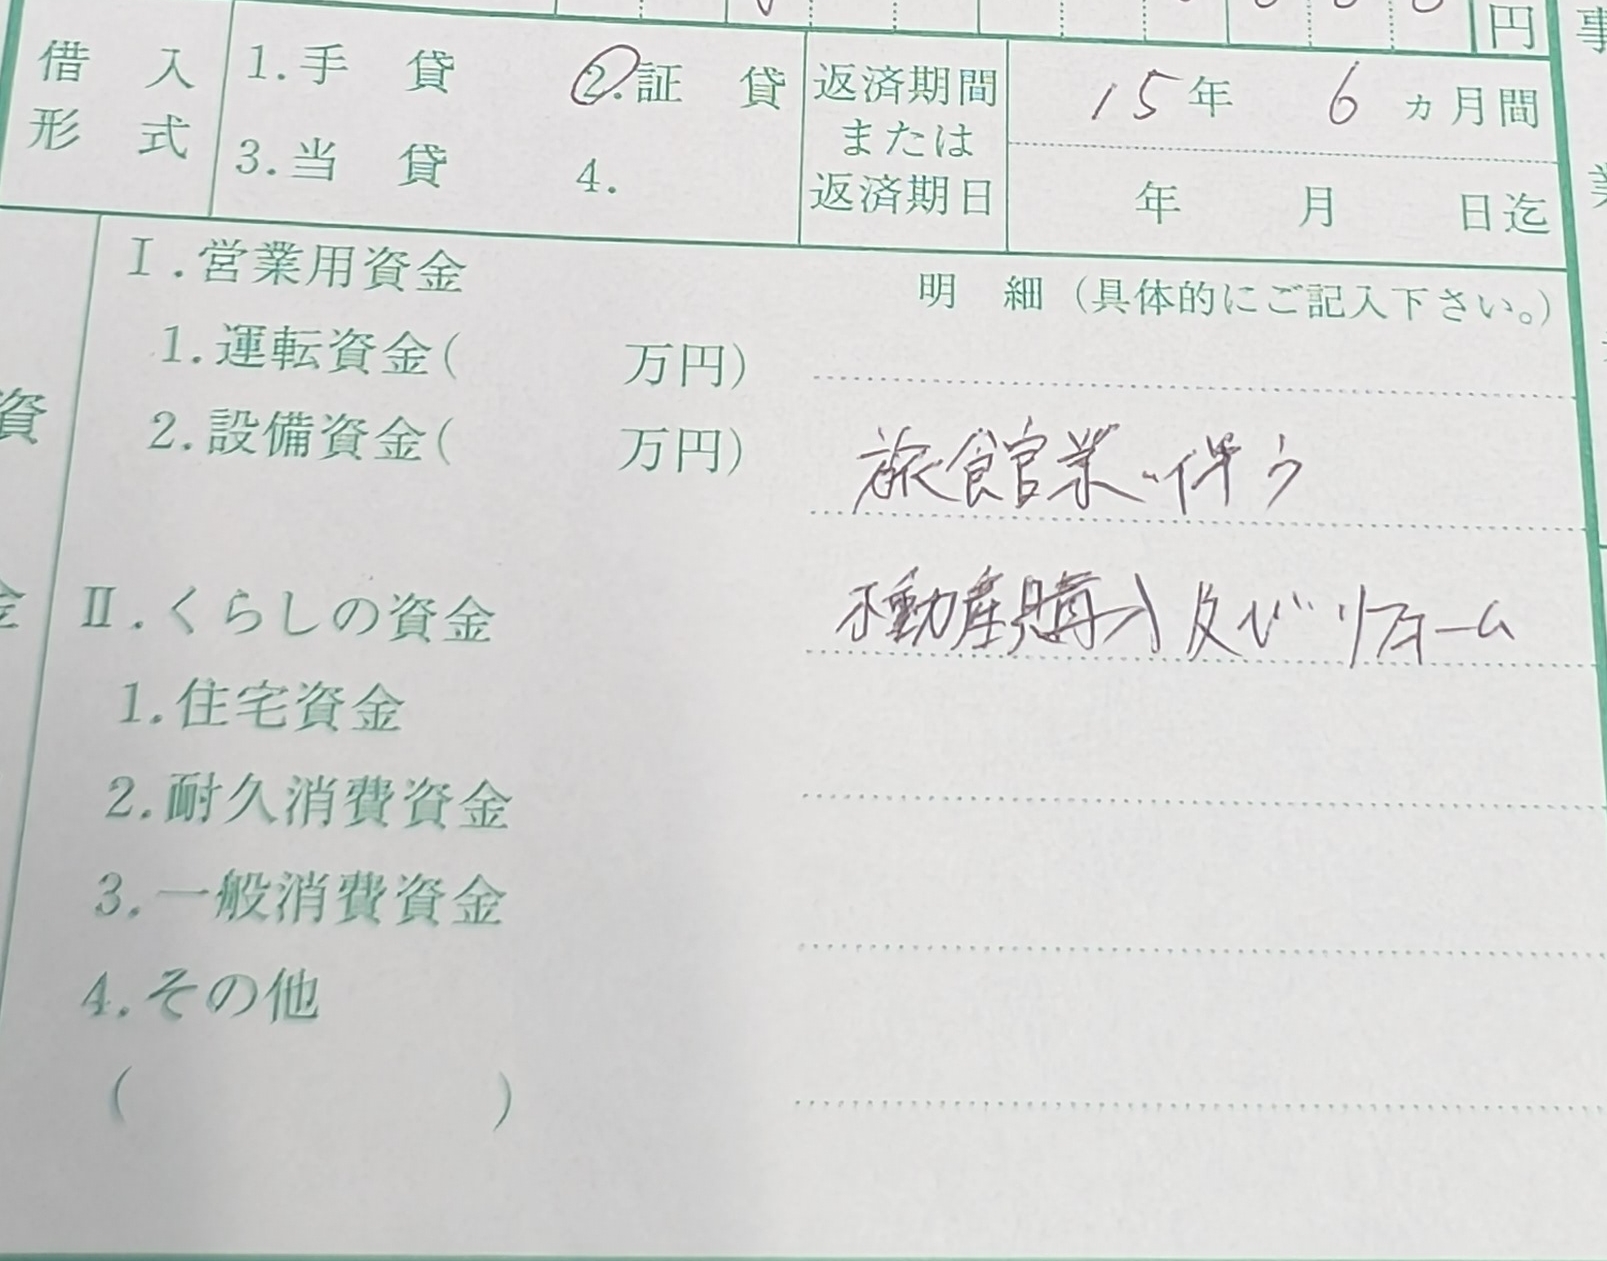 円
借入形式
1.手貸 2.証貸
3.当貸 4.
返済期間
または
返済期日
15年 6ヵ月間
年 月 日迄
資
金
I.営業用資金
1.運転資金( 万円)
2.設備資金( 万円)
II.くらしの資金
1.住宅資金
2.耐久消費資金
3.一般消費資金
4.その他
( )
明細(具体的にご記入下さい。)
旅館業に伴う
不動産購入及びリフォーム
事
業